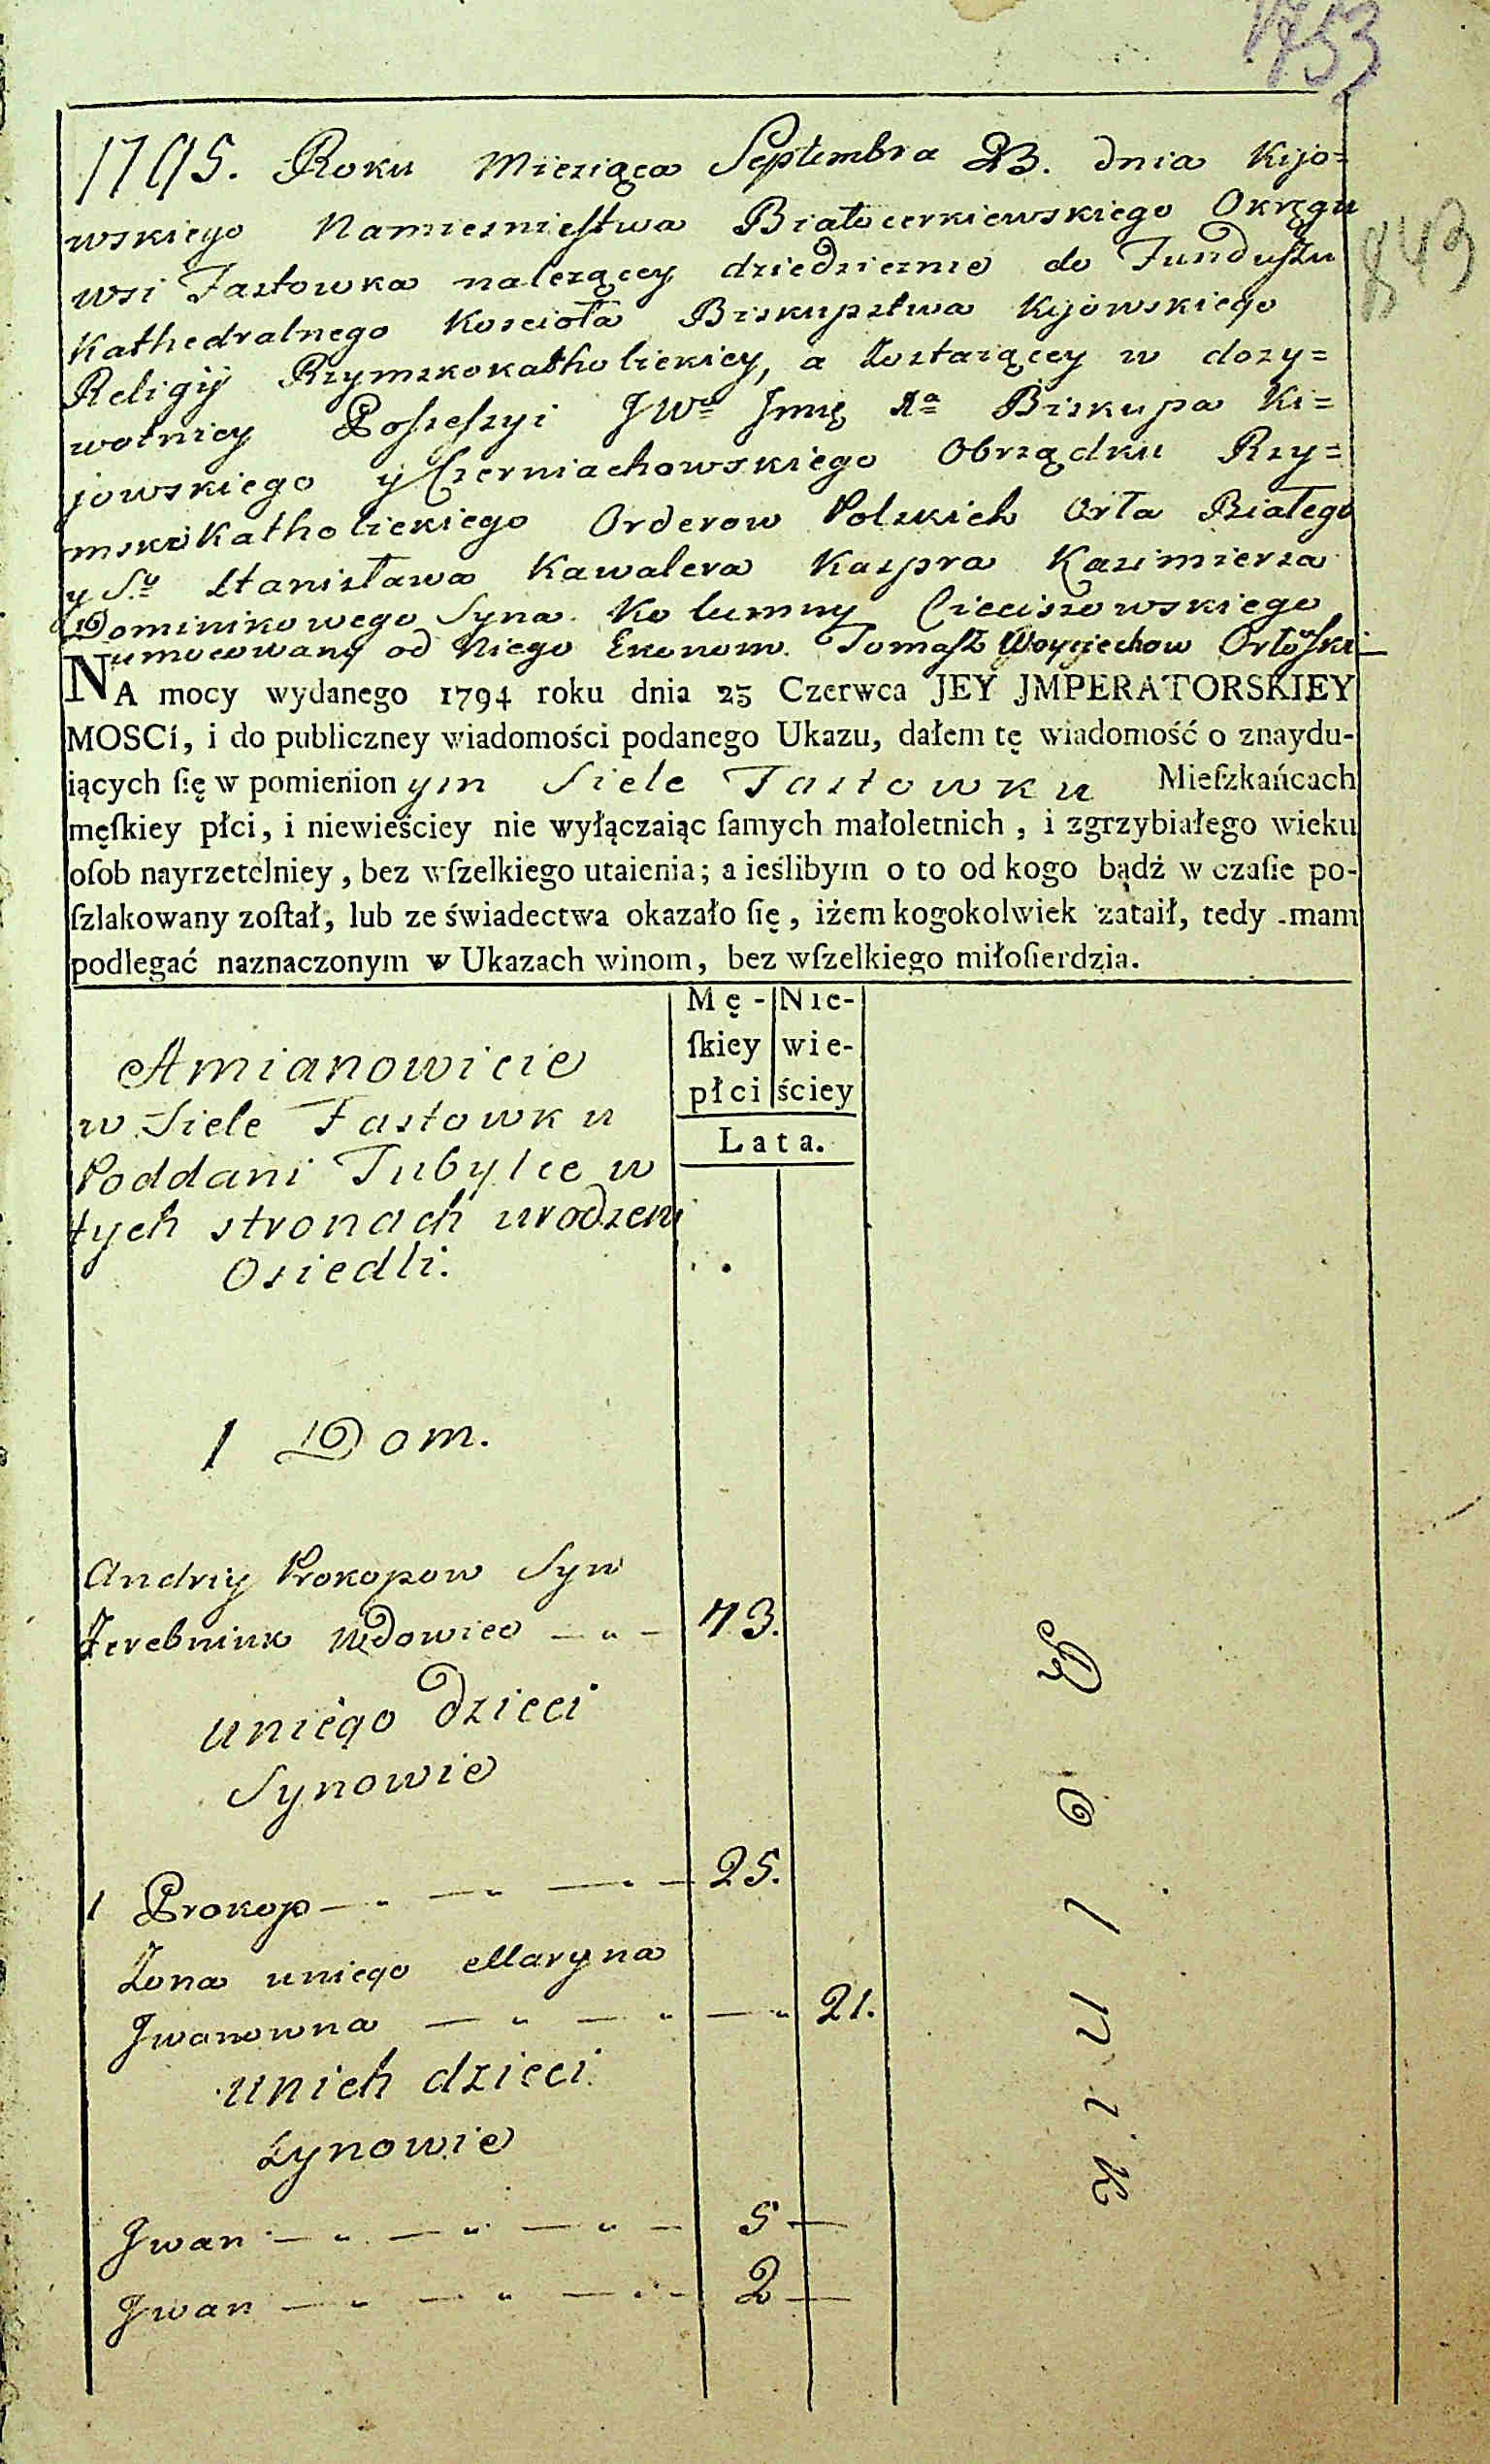 753
843
1795. Roku Miesiąca Septembra 23. dnia Kijo=
wskiego Namiesniestwa Białocerkiewskiego Okręgu
wsi Fastowka nalezącey dziedzicznie do Funduszu
Kathedralnego Koscioła Biskupstwa Kijowskiego
Religij Rzymskokatholickiey, a Zostaiącey w dozy=
wotniey Possessyi JWo Jmię Xa Biskupa Ki=
jowskiego y Czerniachowskiego Obrządku Rzy=
mskokatholickiego Orderow Polskich Orła Białego
y S.o Stanisława Kawalera Kaspra Kazimierza
Dominikowego Syna Kolumny Cieciszowskiego
umocowany od Niego Ekonom. Tomasz Woyciechow Orłoski
NA mocy wydanego 1794 roku dnia 23 Czerwca JEY JMPERATORSKIEY
MOSCi, i do publiczney wiadomości podanego Ukazu, dałem tę wiadomość o znaydu-
iących ſię w pomienionym Siele Fastowku Mieſzkańcach
męſkiey płci, i niewieściey nie wyłączaiąc ſamych małoletnich, i zgrzybiałego wieku
oſob nayrzetelniey, bez wſzelkiego utaienia; a ieślibym o to od kogo bądź w czaſie po-
ſzlakowany zoſtał, lub ze świadectwa okazało ſię, iżem kogokolwiek zataił, tedy mam
podlegać naznaczonym w Ukazach winom, bez wſzelkiego miłoſierdzia.
Mę- Nie-
ſkiey wie-
płci ściey
Lata.
Amianowicie
w Siele Fastowku
Poddani Tubylce w
tych stronach urodzeni
Osiedli.
1 Dom.
Andriy Prokopow Syn
Zerebniuk Wdowiec — „ — 73.
uniego dzieci
Synowie
1 Prokop — „ — „ — „ — 25.
Zona uniego Maryna
Jwanowna — „ — „ — „ 21.
unich dzieci
Synowie
Jwan — „ — „ — „ — 5 —
Jwan — „ — „ — „ — 2 —
Rolnik